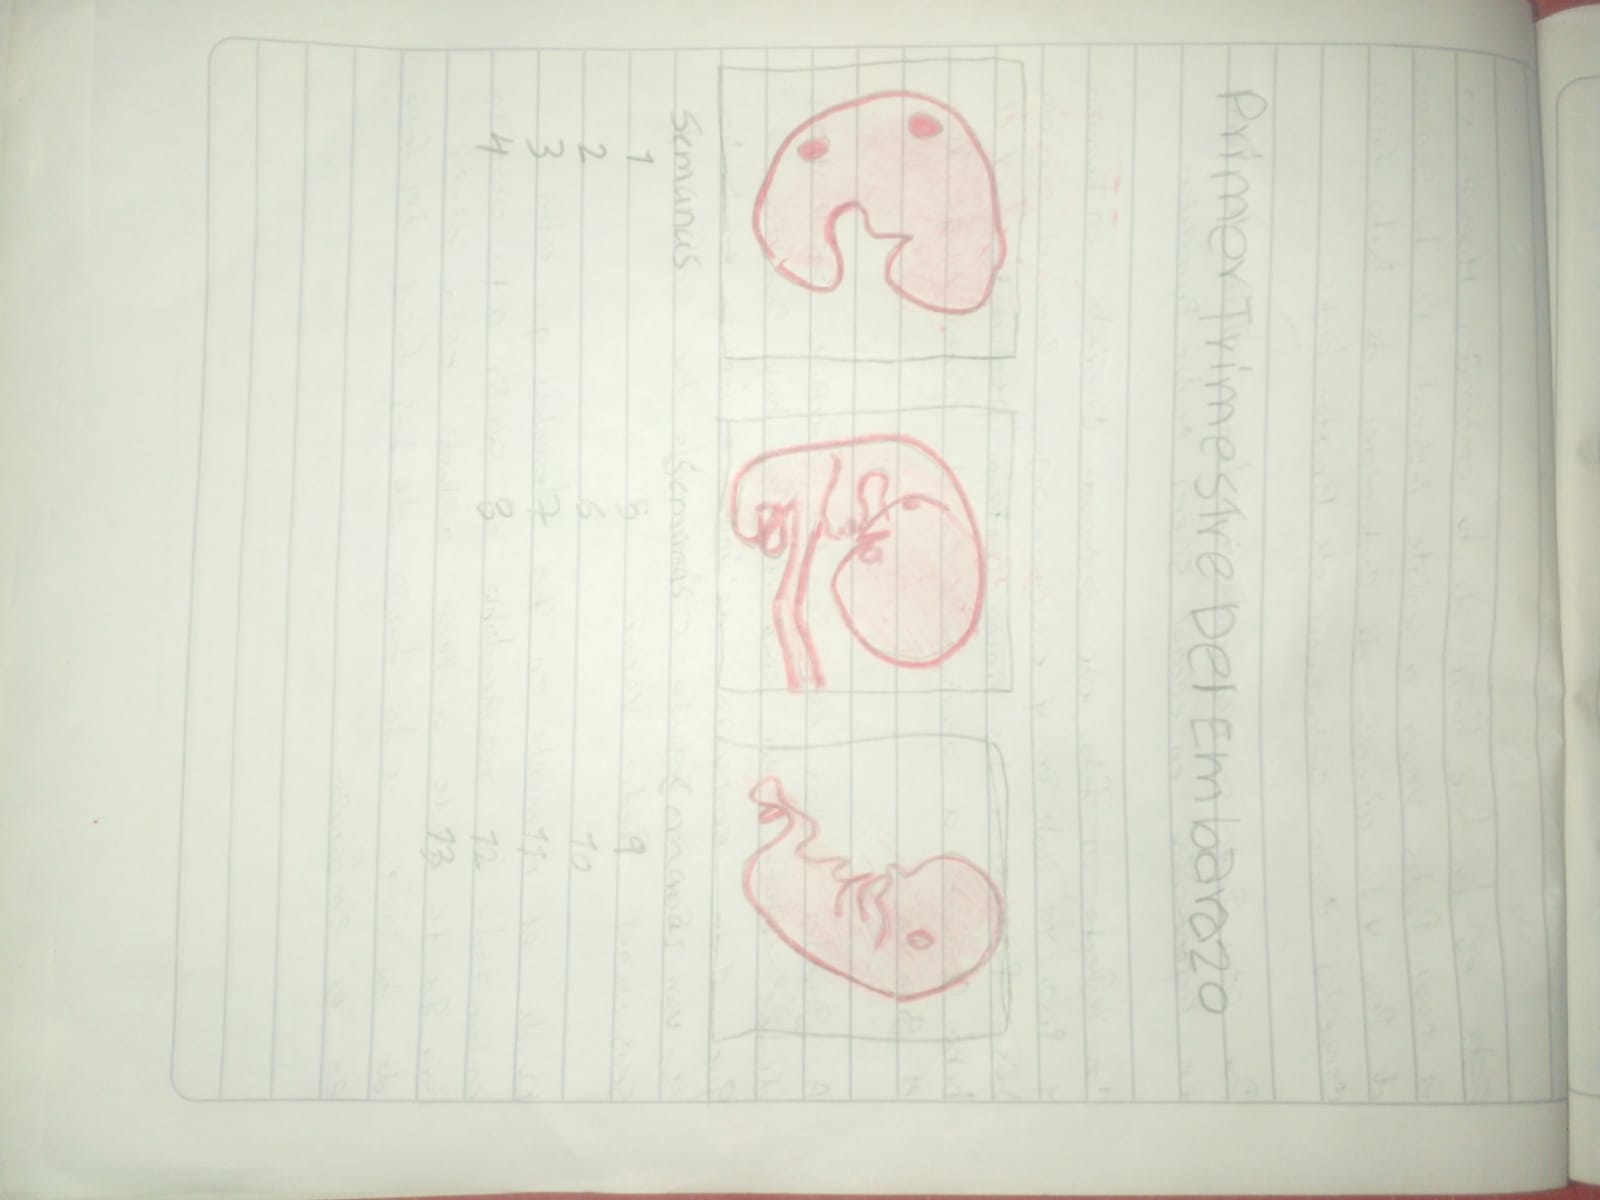 Primer Trimestre Del Embarazo
Semanas Semanas Semanas
1 5 9
2 6 10
3 7 11
4 8 12
13